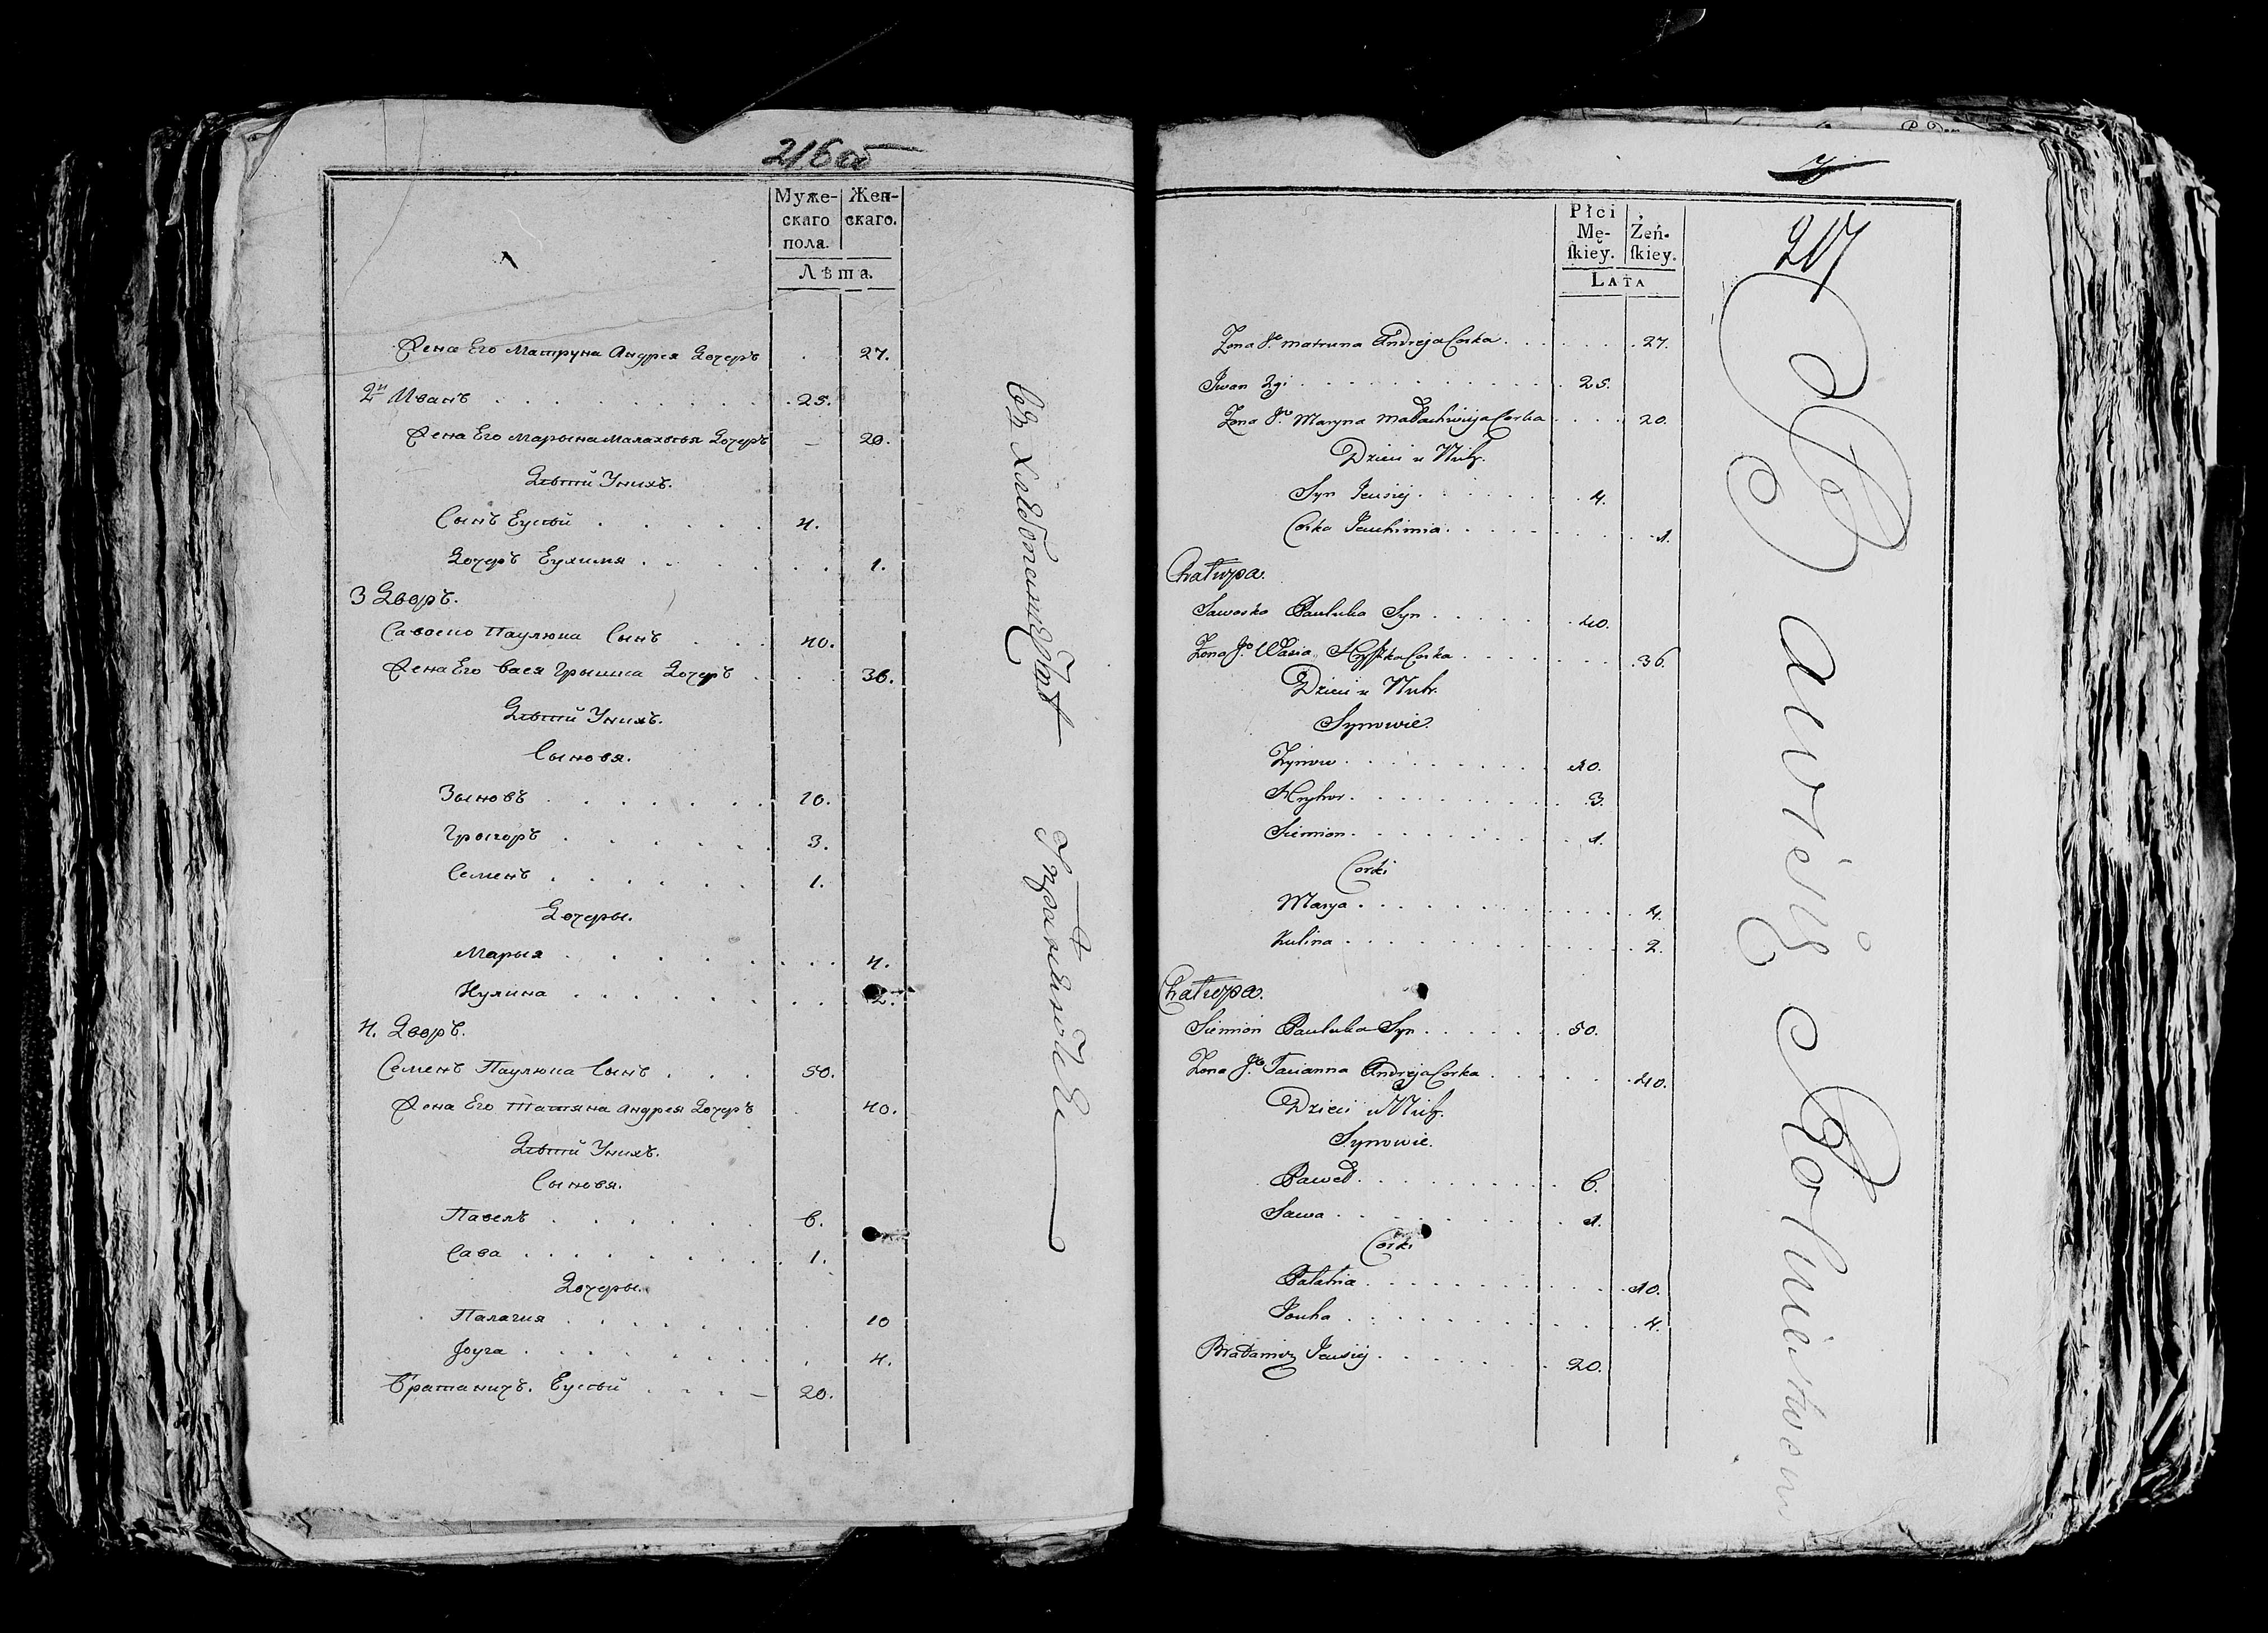 216об
Муже- Жен-
скаго скаго.
пола.
Лѣта.
Жена Его Матруна Андрея Дочеръ . . 27.
2й Иванъ . . . . . . . . 25.
Жена Его Марына Малахвѣя Дочеръ – 20.
Дѣти Унихъ.
Сынъ Еусѣй . . . . . 4.
Дочеръ Еухимя . . . . . . 1.
3 Дворъ.
Савоско Паулюка Сынъ . . . 40.
Жена Его Вася Грышка Дочеръ . . . 36.
Дѣти Унихъ.
Сыновя.
Зыновъ . . . . . . 10.
Грыгоръ . . . . . . 3.
Семенъ . . . . . . 1.
Дочеры.
Марыя . . . . . . . . 4.
Кулина . . . . . . . . 2.
4. Дворъ.
Семенъ Паулюка Сынъ . . . 50.
Жена Его Татяна Андрея Дочеръ . 40.
Дѣти Унихъ.
Сыновя.
Павелъ . . . . . . 6.
Сава . . . . . . . 1.
Дочеры.
Палагия . . . . . . . 10
Југа . . . . . . . . 4.
Братаничъ. Еусѣй . . . – 20.
217
Płci Żeń-
Mę- ſkiey.
ſkiey.
LATA
Zona Jº Matruna Andreja Corka . . . . . . 27.
Jwan 2gi . . . . . . . . . . . 25.
Zona Jº Maryna Małachwieja Corka . . . . 20.
Dzieci u Nich.
Syn Jeusiej . . . . . . . . 4.
Corka Jeuchimia . . . . . . . . . . 1.
Chałupa.
Sawosko Pauluka Syn . . . . . . 40.
Zona Jº Wasia Hryszka Corka . . . . . . . . 36.
Dzieci u Nich.
Synowie.
Zynow . . . . . . . . . 10.
Hryhor . . . . . . . . . 3.
Siemion . . . . . . . . . 1.
Corki
Marya . . . . . . . . . . . . 4.
Kulina . . . . . . . . . . . . 2.
Chałupa.
Siemion Pauluka Syn . . . . . . . 50.
Zona Jº Tacianna Andreja Corka . . . . . . . 40.
Dzieci u Nich.
Synowie.
Paweł . . . . . . . . . 6.
Sawa . . . . . . . . . . 1.
Corki
Pałahia . . . . . . . . . . . 10.
Jouha . . . . . . . . . . . . 4.
Bratanicz Jeusiej . . . . . . . 20.